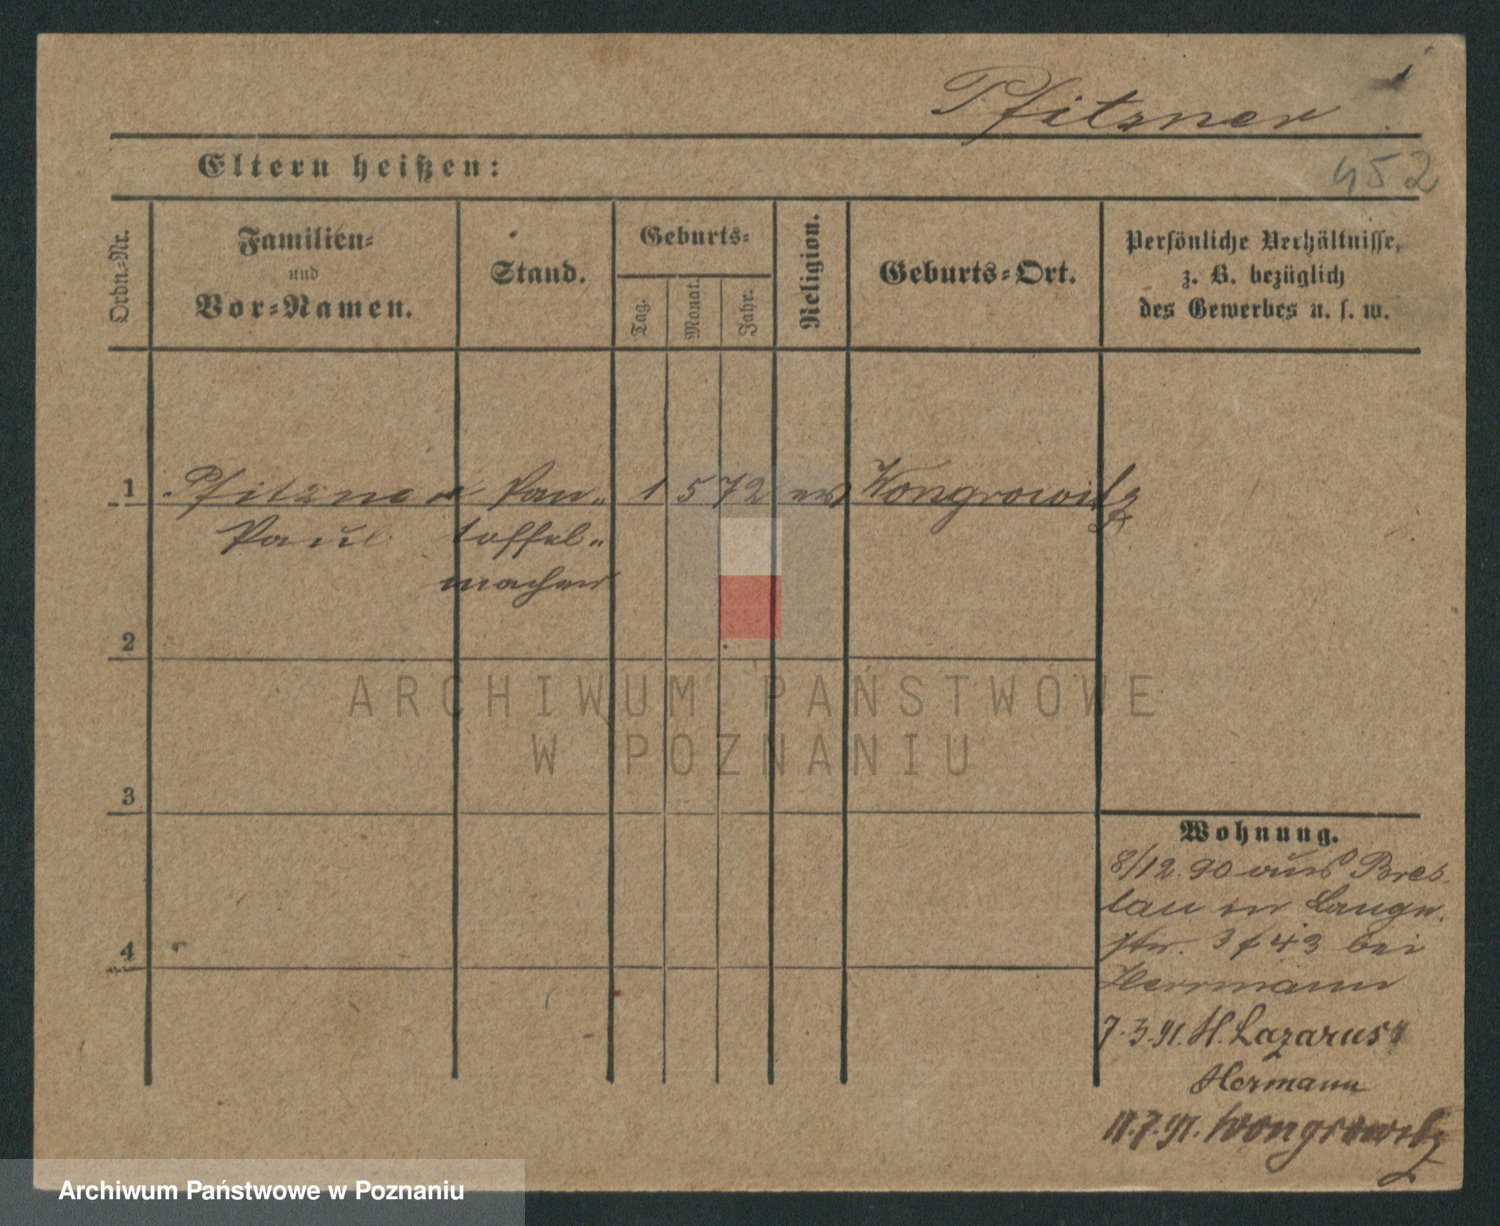 Pfitzner
Eltern heißen:
452
Ordn.-Nr.
Familien-
und
Vor-Namen.
Stand.
Geburts-
Tag.
Monat.
Jahr.
Religion.
Geburts-Ort.
Persönliche Verhältnisse,
z. B. bezüglich
des Gewerbes u. s. w.
1 Pfitzner Pan- 1 5 72 ev Wongrowitz
Paul toffel-
macher
2
ARCHIWUM PAŃSTWOWE
W POZNANIU
3
Wohnung.
8/12. 90 aus Bres-
lau in
str. 3 / 43 bei
4
Herrmann
7.3.91. H. Lazarus
Hermann
11.7.91. Wongrowitz
Archiwum Państwowe w Poznaniu